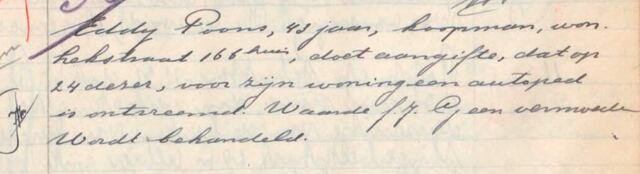 Eddy Poons, 43 jaar, koopman, won.
hekstraat 166 huis, doet aangifte, dat op
24 dezer, voor zijn woning een autoped
is ontvreemd. Waarde f 7. Geen vermoeden
Wordt behandeld.